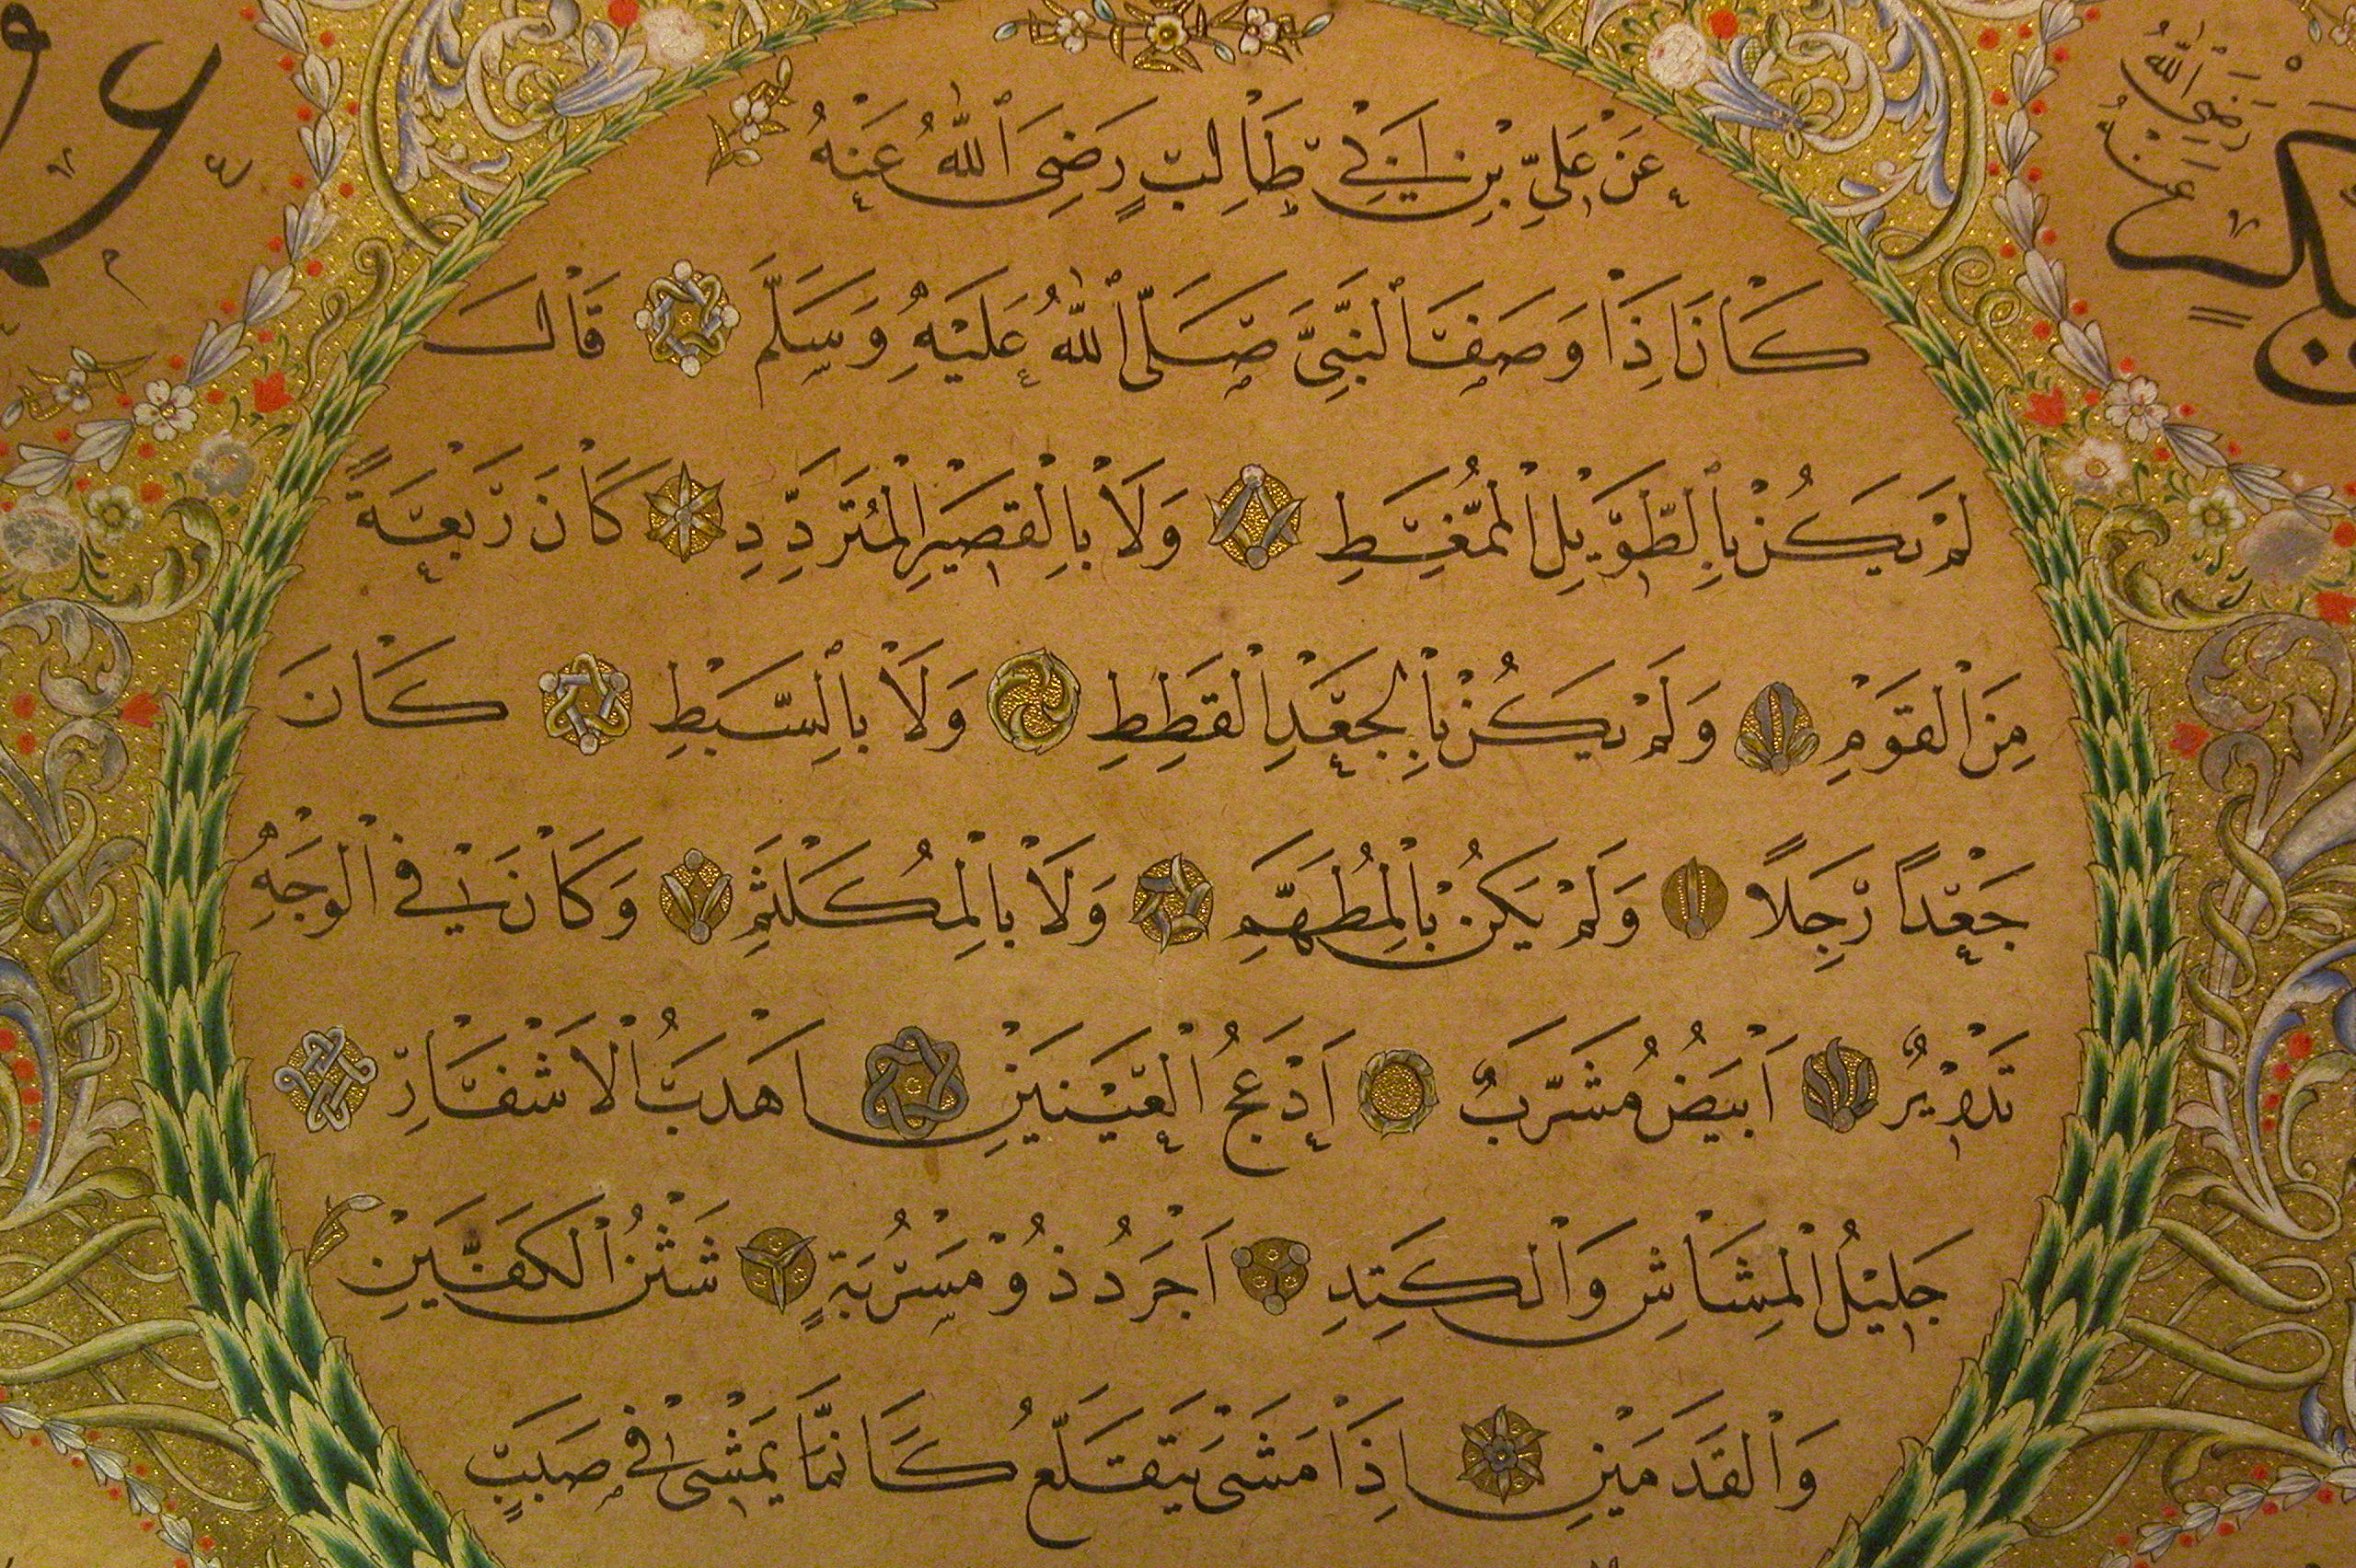 عَنْ عَلِيِّ بْنِ اَبِي طَالِبٍ رَضِيَ ٱللّٰهُ عَنْهُ
كَانَ اِذَا وَصَفَ ٱلنَّبِيَّ صَلَّى ٱللّٰهُ عَلَيْهِ وَسَلَّمَ قَالَ
لَمْ يَكُنْ بِالطَّوِيلِ الْمُمَّغِطِ وَلَا بِالْقَصِيرِ الْمُتَرَدِّدِ كَانَ رَبْعَةً
مِنَ الْقَوْمِ وَلَمْ يَكُنْ بِالْجَعْدِ الْقَطِطِ وَلَا بِالسَّبِطِ كَانَ
جَعْدًا رَجِلًا وَلَمْ يَكُنْ بِالْمُطَهَّمِ وَلَا بِالْمُكَلْثَمِ وَكَانَ فِي الْوَجْهِ
تَدْوِيرٌ اَبْيَضُ مُشْرَبٌ اَدْعَجُ الْعَيْنَيْنِ اَهْدَبُ الْاَشْفَارِ
جَلِيلُ الْمُشَاشِ وَالْكَتِدِ اَجْرَدُ ذُو مَسْرُبَةٍ شَثْنُ الْكَفَّيْنِ
وَالْقَدَمَيْنِ اِذَا مَشَى يَتَقَلَّعُ كَاَنَّمَا يَمْشِي فِي صَبَبٍ
رَضِيَ ٱللّٰهُ عَنْهُ